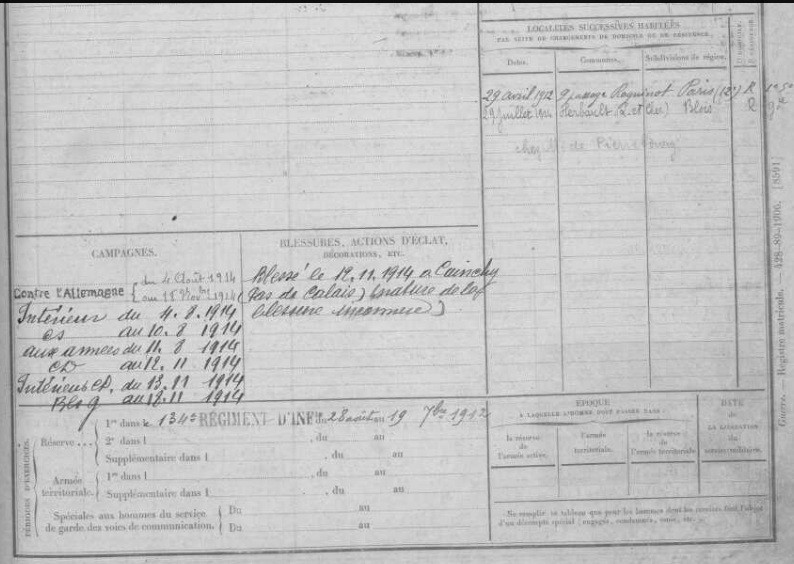 LOCALITÉS SUCCESSIVES HABITÉES
PAR SUITE DE CHANGEMENTS DE DOMICILE OU DE RÉSIDENCE.
Dates. Communes. Subdivisions de région.
29 avril 1912 9 passage Raguinot Paris (12e) R
29 juillet Herbault (L. et Cher) Blois R
chez M. de Pierrebourg
CAMPAGNES.
Contre l'Allemagne du 4 Août 1914
au 18 Novbre 1914
Intérieur du 4.8.1914
CS au 10.8 1914
aux armées du 11.8 1914
CD au 12.11 1914
Intérieur CD. du 13.11 1914
Bles g au 18.11 1914
BLESSURES, ACTIONS D'ÉCLAT,
DÉCORATIONS, ETC.
Blessé le 12.11.1914 à Cuinchy
(Pas de Calais) (nature de la
blessure inconnue)
PÉRIODES D'EXERCICES.
Réserve...
1re dans le 134e RÉGIMENT D'INFie du 28 août au 19 7bre 1912
2e dans l , du au
Supplémentaire dans l , du au
Armée territoriale.
1re dans l , du au
Supplémentaire dans l , du au
Spéciales aux hommes du service
de garde des voies de communication.
Du au
Du au
ÉPOQUE
À LAQUELLE L'HOMME DOIT PASSER DANS
la réserve de l'armée active.
l'armée territoriale.
la réserve de l'armée territoriale
DATE
de
LA LIBÉRATION
du
service militaire.
Ne remplir ce tableau que pour les hommes dont les services font l'objet
d'un décompte spécial (engagés, condamnés, omis, etc.).
Guerre. — Registre matricule. — 428-89-1906. [8591]